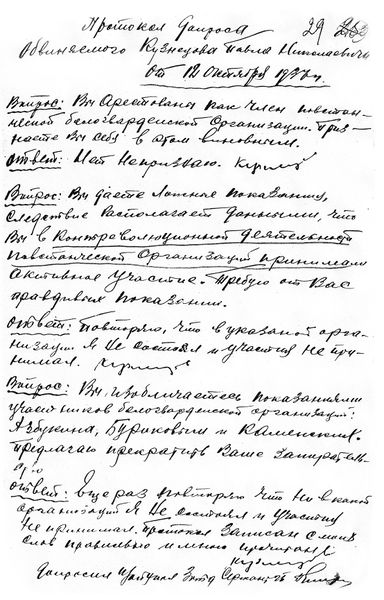 Протокол допроса 29
Обвиняемого Кузнецова Павла Николаевича
от 12 октября 1937 г.
Вопрос: Вы арестованы как член повстан-
ческой белогвардейской организации. Приз-
наете Вы себя в этом виновным.
Ответ: Нет не признаю.
Вопрос: Вы даете ложные показания,
следствие располагает данными, что
Вы в контрреволюционной деятельности
повстанческой организации принимали
активное участие. Требую от Вас
правдивых показаний.
Ответ: Повторяю, что в указаной орга-
низации я не состоял и участия не при-
нимал.
Вопрос: Вы, изобличаетесь показаниями
участников белогвардейской организации:
Азбукина, Буриковым и Каменским.
предлагаю прекратить Ваше запиратель-
Ответ: Еще раз повторяю что ни в какой
организации я не состоял и участия
не принимал. Протокол записан с моих
слов правильно и мною прочитан
Допросил